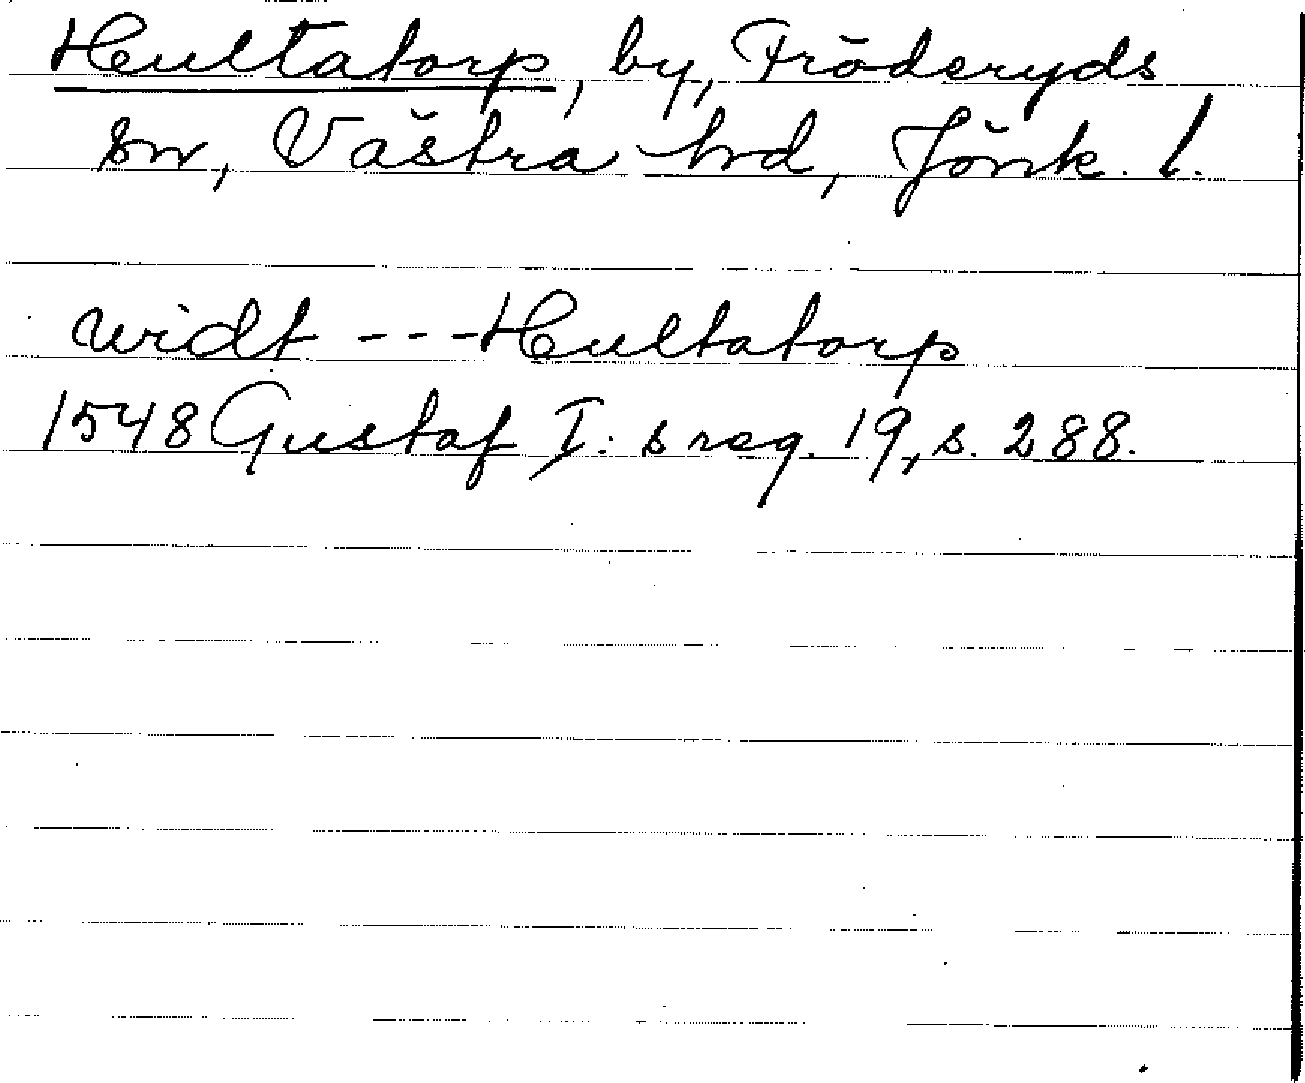 Hultatorp, by, Fröderyds
sn, Västra hrd, Jönk. l.
widt --- Hultatorp
1548 Gustaf I:s reg. 19, s. 288.